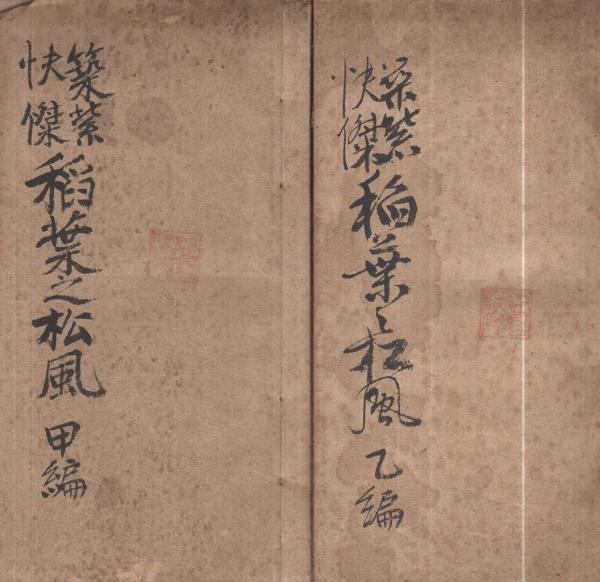 築紫
快傑
稻葉之松風
甲編
築紫
快傑
稻葉之松風
乙編